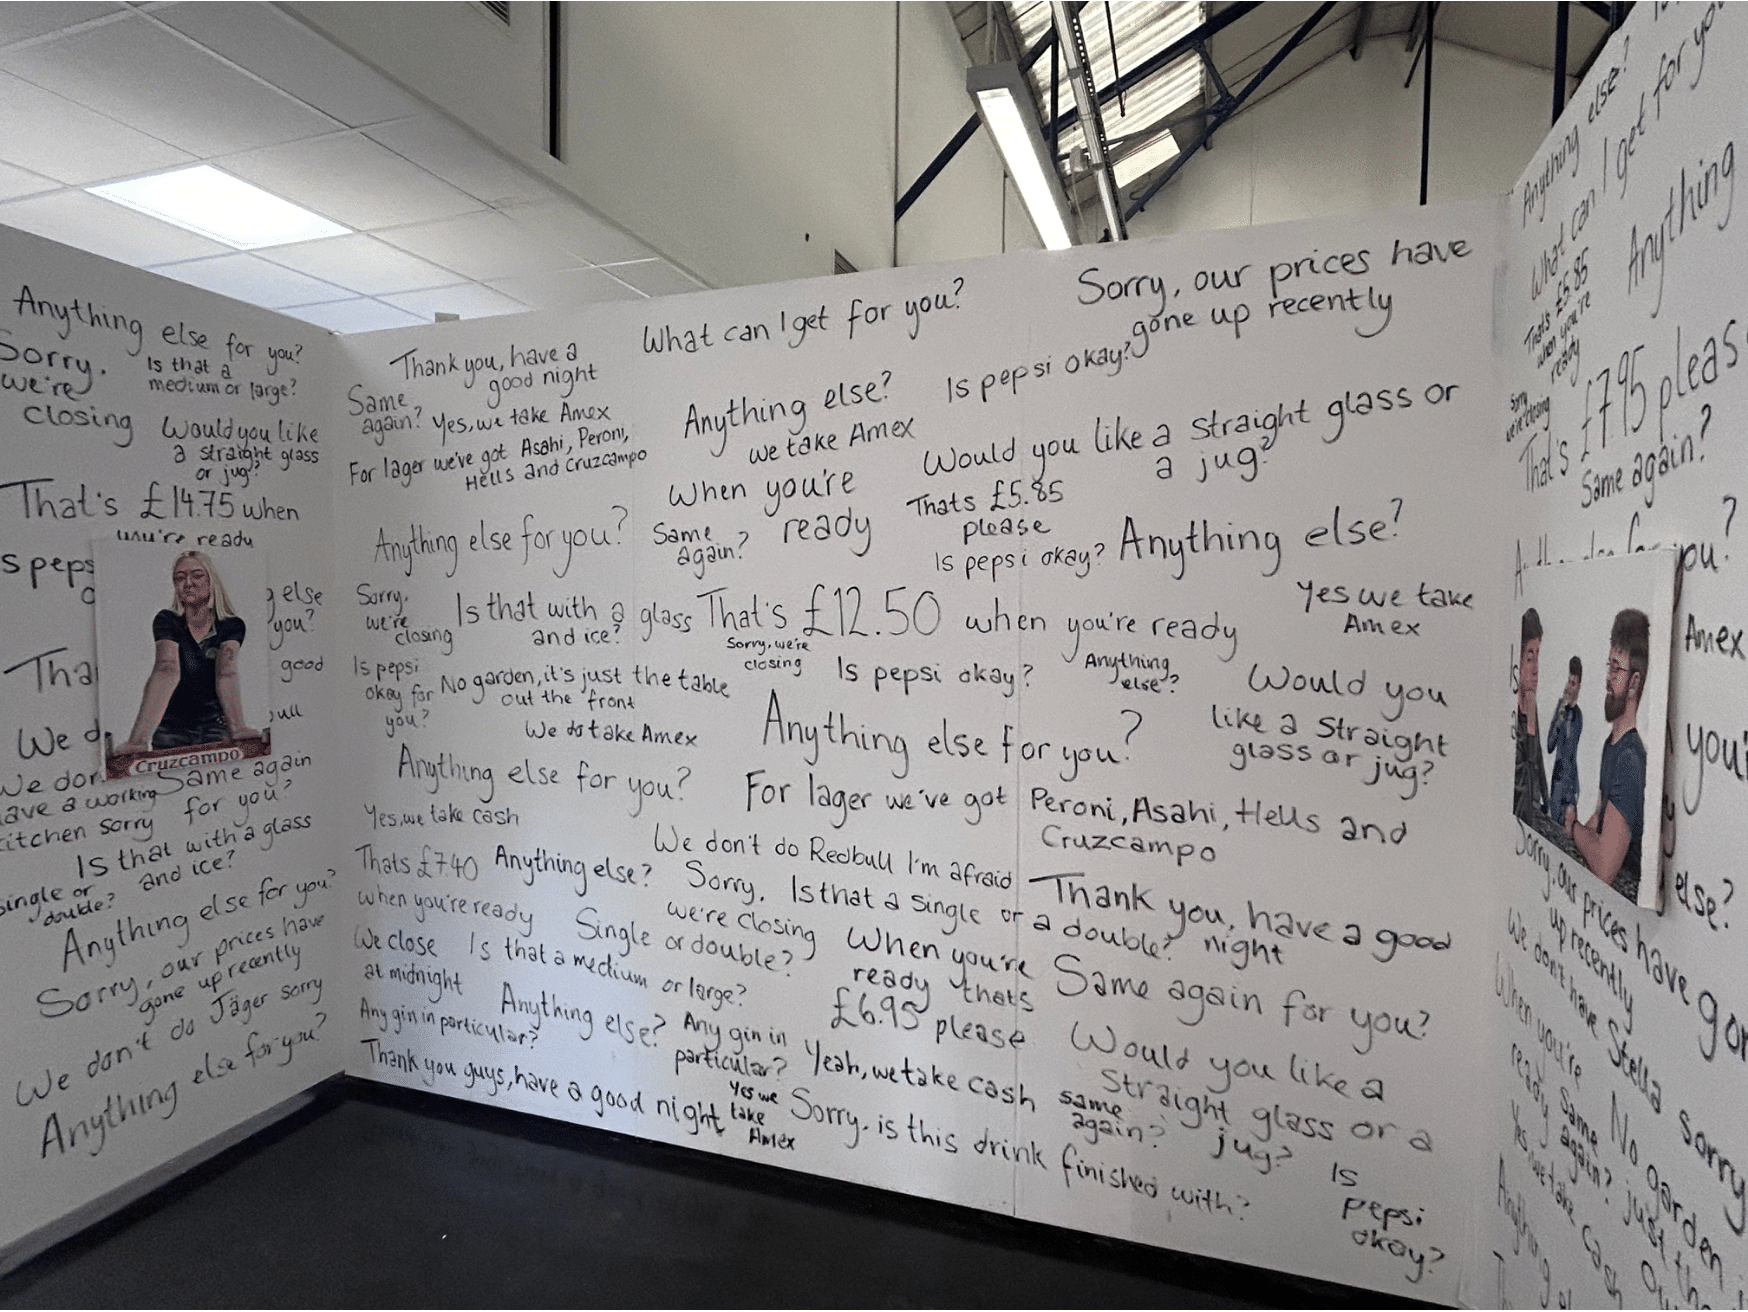 Anything else for you?
Sorry,
we're
closing
Is that a
medium or large?
Would you like
a straight glass
or jug?
That's £14.75 when
you're ready
else
you?
good
We
Cruzcampo
Same again
for you?
We don't
have a working
kitchen sorry
Is that with a glass
and ice?
single or
double?
Anything else for you?
Sorry, our prices have
gone up recently
We don't do Jäger sorry
Anything else for you?
Thank you, have a
good night
Same
again?
Yes, we take Amex
For lager we've got Asahi, Peroni,
Hells and Cruzcampo
Anything else for you?
Sorry,
we're
closing
Is that with a glass
and ice?
Is pepsi
okay for
you?
No garden, it's just the table
out the front
We do take Amex
Anything else for you?
Yes, we take cash
Thats £7.40
when you're ready
Anything else?
We close
at midnight
Is that a medium or large?
Any gin in particular?
Anything else?
Thank you guys, have a good night
What can I get for you?
Anything else?
we take Amex
When you're
ready
Same
again?
That's £12.50 when you're ready
Sorry, we're
closing
Is pepsi okay?
Anything
else?
Anything else for you?
For lager we've got Peroni, Asahi, Hells and
Cruzcampo
We don't do Redbull I'm afraid
Sorry,
we're closing
Is that a single or a double?
Single or double?
When you're
ready thats
£6.95 please
Any gin in
particular?
Yeah, we take cash
Yes we
take
Amex
Sorry, is this drink finished with?
Sorry, our prices have
gone up recently
Is pepsi okay?
Would you like a straight glass or
a jug?
Thats £5.85
please
Is pepsi okay?
Anything else?
Yes we take
Amex
Would you
like a straight
glass or jug?
Thank you, have a good
night
Same again for you?
Would you like a
straight glass or a
jug?
same
again?
Is
pepsi
okay?
Anything else?
What can I get for you
Thats £5.85
when you're
ready
Anything
Sorry
we're closing
That's £7.95 please
Same again?
you?
Amex
else?
Sorry, our prices have gone
up recently
We don't have Stella sorry
When you're
ready
Same
again?
No garden
just the
Yes, we take cash
Anything